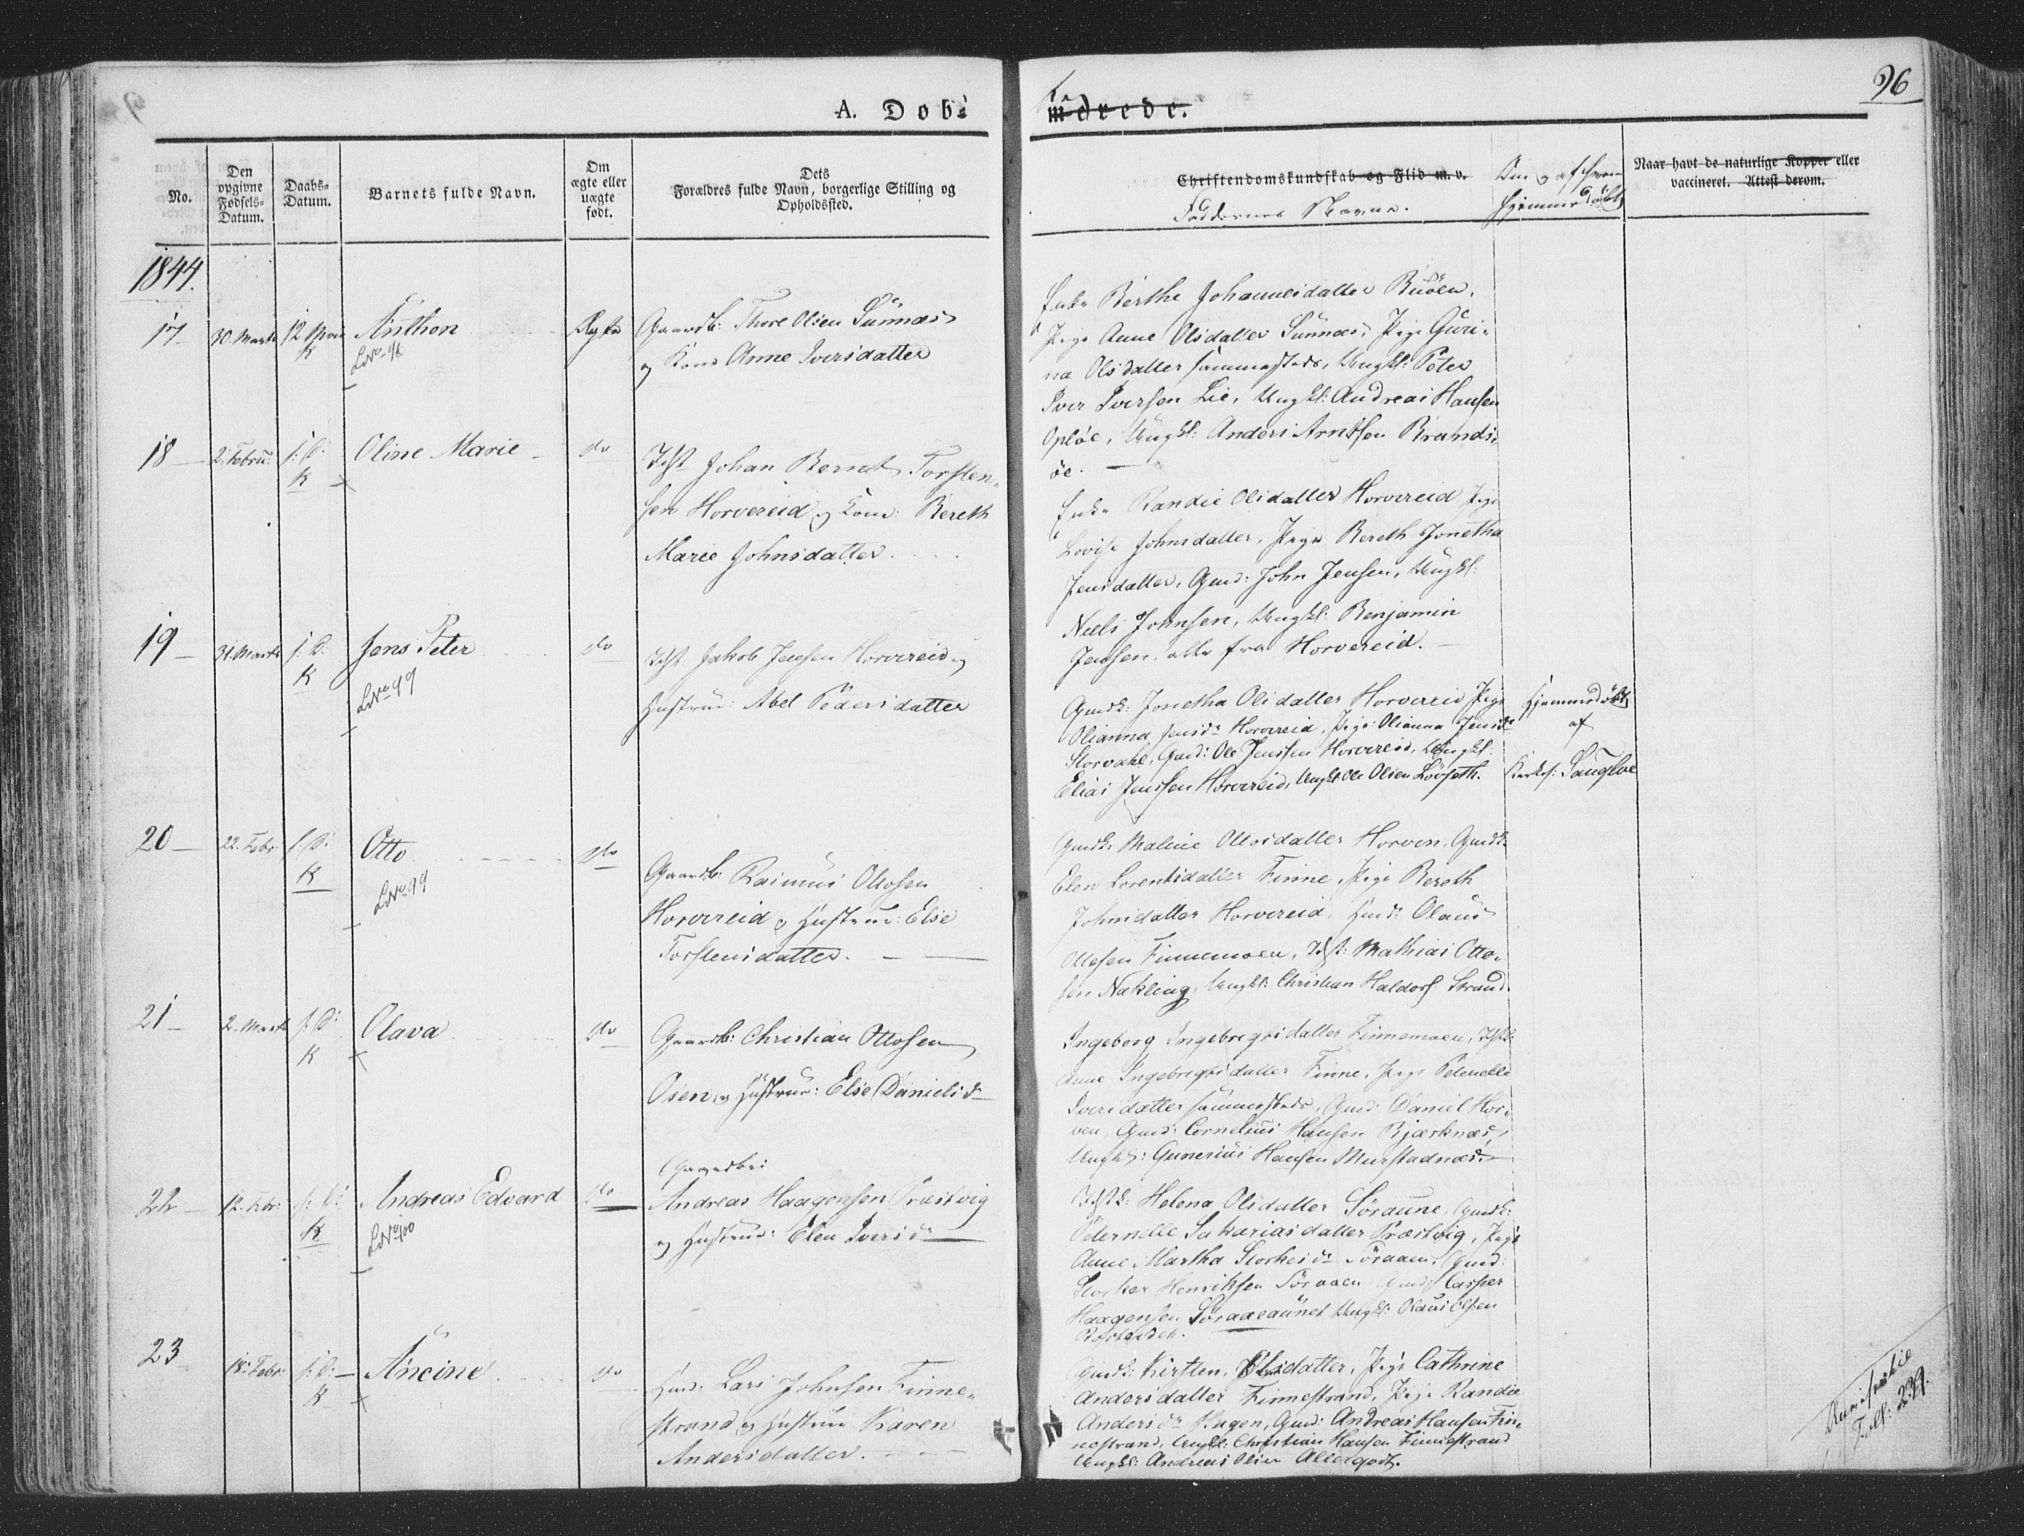 96
A. Døb-
mdrede.
No.
Den opgivne Fødsels-Datum.
Daabs-Datum.
Barnets fulde Navn.
Om ægte eller uægte født.
Dets Forældres fulde Navn, borgerlige Stilling og Opholdssted.
Christendomskundskab og Flid m. v.
Faddernes Navne.
Om og af hvem hjemmedøbt
Naar havt de naturlige Kopper eller vaccineret. Attest derom.
1844.
17 30. Marts 12 April K Anthon Ægte Gaardb: Thore Olsen Sünnæs
LNo 96
og Kone Anne Iversdatter
Enke Berthe Johannesdatter Buöen,
Pige Anne Olsdatter Sunnæs, Pige Guri-
na Olsdatter sammesteds, Ungk: Peter
Iver Iversen Lie, Ungk: Andreas Hansen
Opløe, Ungk: Anders Arntsen Brands-
øe. —
18 2. Febru: s: D: K Oline Marie do
Idst Johan Bernt Torsten-
sen Horvereid og Kone: Bereth
Marie Johnsdatter.
Enke Randie Olsdatter Horvereid Pige
Lovise Johnsdatter, Pige Bereth Jonetha
Jensdatter, Gmd: John Jensen, Ungk:
Niels Johnsen, Ungk: Benjamin
Jensen, alle fra Horvereid. —
19 31. Marts s: D: K Jens Peter do
LNo 99
Idst Jakob Jensen Horvereid og
Hustrue: Abel Pedersdatter
Gmdk: Jonetha Olsdatter Horvereid Pige
Olianna Jensdr Horvereid, Pige Olianna Jensdr
Horvereid, Ungk:
Elias Jenssen Horvereid, Ungk Ole Olsen Lövseth.
Hjemmedöbt
af
Kirkes: Saugstue
20 22. Febr. s: D: K Otto do
LNo 99
Gaardb: Rasmus Olsen
Horvereid og Hustrue: Else
Torstensdatter. —
Gmdk: Malene Olsdatter Horven, Gmdk
Elen Lorentsdatter Finne, Pige Bereth
Johnsdatter Horvereid, Gmd: Olaus
Olesen Finnemoen, Idst: Mathias Otto-
sen Nakling, Ungk: Christian Haldorf Strand.
21 2. Marts s: D: K Olava do
Gaardb: Christian Ottosen
Osen, og Hustrue: Else Danielsd
Ingeborg Ingebregtsdatter Finnemoen, Idstk:
Anne Ingebregtsdatter Finne, Pige Petenelle
Iversdatter sammesteds, Gmd: Daniel Hor-
ven, Gmd: Cornelius Hansen Bjærknæs,
Ungk: Gunerius Hansen Murstadnæs. —
22 12. Febr: s: D: K Andreas Edvard do
LNo 100
Gaardbr:
Andreas Haagensen Præstvig
og Hustrue: Elen Iversdr
Idstk: Helena Olsdatter Søraune, Gmdk:
Peternelle Sakariasdatter Præstvig, Pige
Anne Martha Storkesdr Söraaen, Gmd:
Storker Henriksen Söraaen Gmd: Casper
Haagensen Söraaeaunet Ungk: Olaus Olsen
23 18. Febr: s: D: K Ancine do
Gmd: Lars Johnsen Finne-
strand og Hustrue Karen
Andersdatter.
Gmdk: Kirsten Olsdatter, Pige Cathrine
Andersdatter Finnestrand, Pige Randie
Andersdr Hagen, Gmd: Andreas Hansen Fin-
nestrand, Ungk: Christian Hansen Finnestrand
Ungk: Andreas Olsen
Foll: 239.